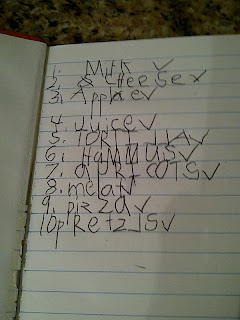 1. Milk ✓
2. & cHeeSe ✓
3. Apple ✓
4. Juice ✓
5. TORTillA ✓
6. HuMMUS ✓
7. apRicOTS ✓
8. melaN ✓
9. pizza ✓
10 pRetzlS ✓